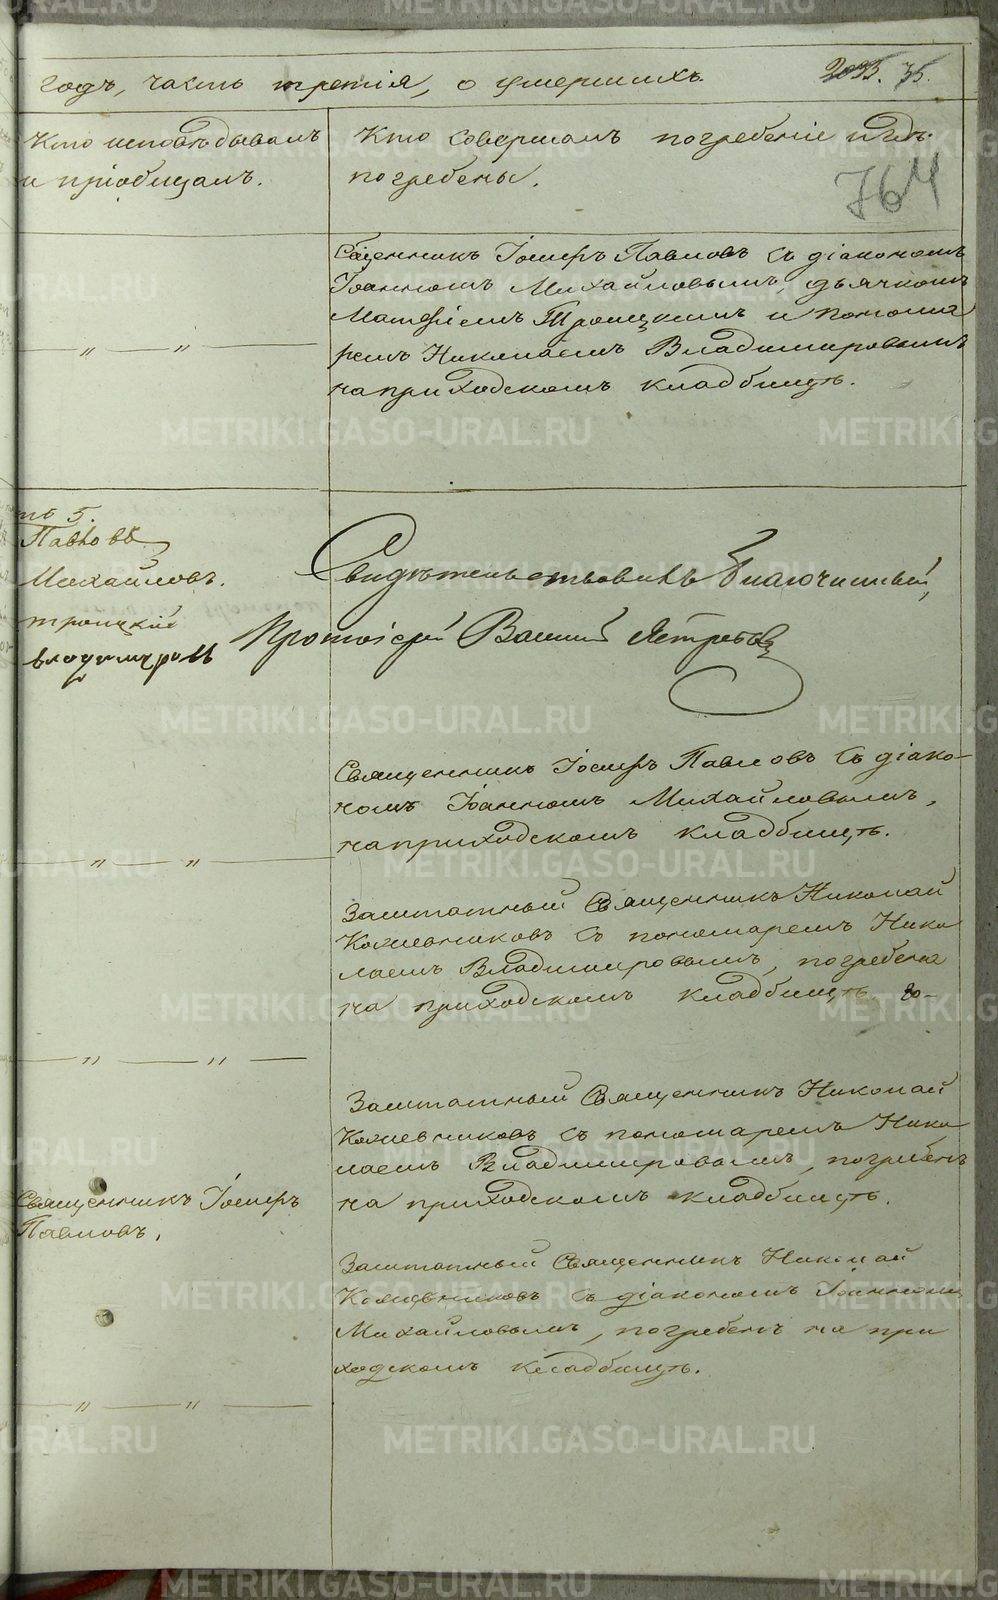 годъ, часть третія, о умершихъ. 75.
Кто исповѣдывалъ
и пріобщалъ.
Кто совершалъ погребеніе и гдѣ
погребены.
764
Священникъ Іосифъ Павловъ съ діакономъ
Іоанномъ Михайловымъ, дьячкомъ
Матѳіемъ Троицкимъ и понома
ремъ Николаемъ Владимировымъ
на приходскомъ кладбищѣ.
" "
№ 5.
Павловъ
Михайловъ.
Троицкій
Владимировъ
Свидѣтельствовалъ Благочинный,
Протоіерей Василій Ястребовъ
Священникъ Іосифъ Павловъ съ діако-
номъ Іоанномъ Михайловымъ,
на приходскомъ кладбищѣ.
" "
Заштатный Священникъ Николай
Кожевниковъ съ пономаремъ Нико
лаемъ Владимировымъ, погребена
на приходскомъ кладбищѣ.
" "
Заштатный Священникъ Николай
Кожевниковъ съ пономаремъ Нико
лаемъ Владимировымъ, погребенъ
на приходскомъ кладбищѣ.
Священникъ Іосифъ
Павловъ.
Заштатный Священникъ Николай
Кожевниковъ съ діакономъ Іоанномъ
Михайловымъ, погребенъ на при
ходскомъ кладбищѣ.
" "
METRIKI.GASO-URAL.RU